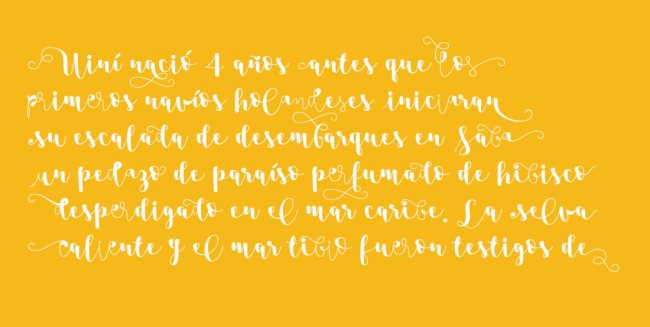 Winí nació 4 años antes que los
primeros navíos holandeses iniciaran
su escalada de desembarques en Saba
un pedazo de paraíso perfumado de hibisco
desperdigado en el mar caribe. La selva
caliente y el mar tibio fueron testigos de